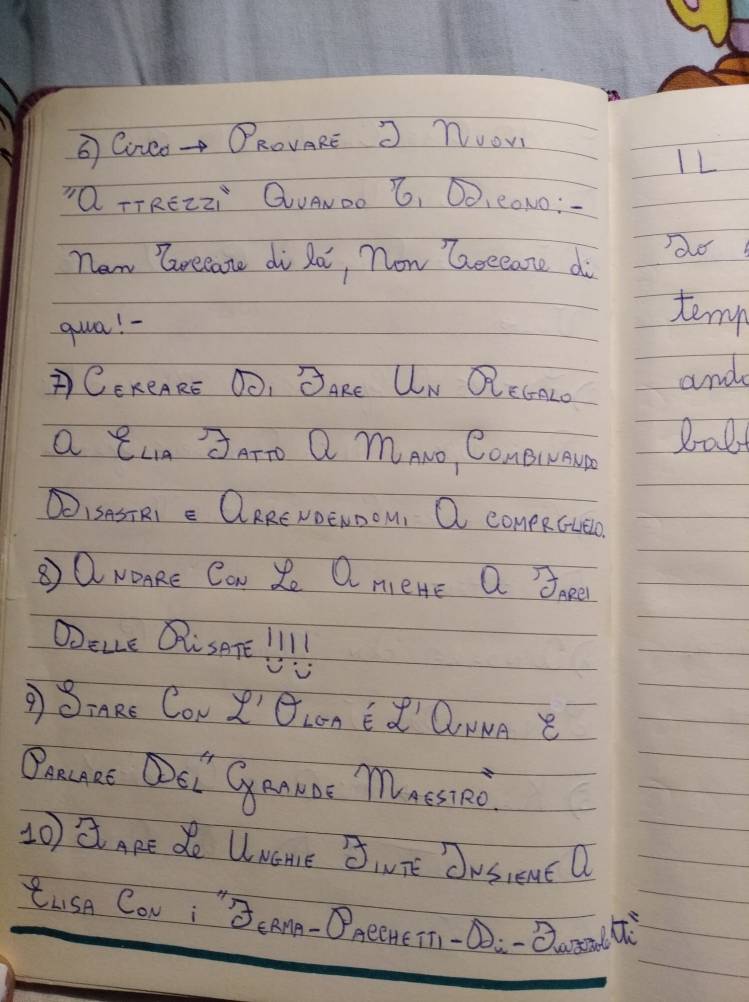 6) Circo → PROVARE I NUOVI
"ATTREZZI" QUANDO TI DICONO:-
Non Toccare di lá, Non Toccare di
qua!-
7) CERCARE DI FARE UN REGALO
A ELIA FATTO A MANO, COMBINANDO
DISASTRI E ARRENDENDOMI A COMPRGLIELO.
8) ANDARE CON Le AMICHE A FARCI
DELLE RiSATE !!!!
9) STARE CON L'OLGA É L'ANNA E
PARLARE DEL "GRANDE MAESTRO".
10) FARE Le UNGHIE FINTE INSIEME A
ELISA CON i "FERMA-PACCHETTI-Di-Fazzoletti"
IL
Do
temp
ando